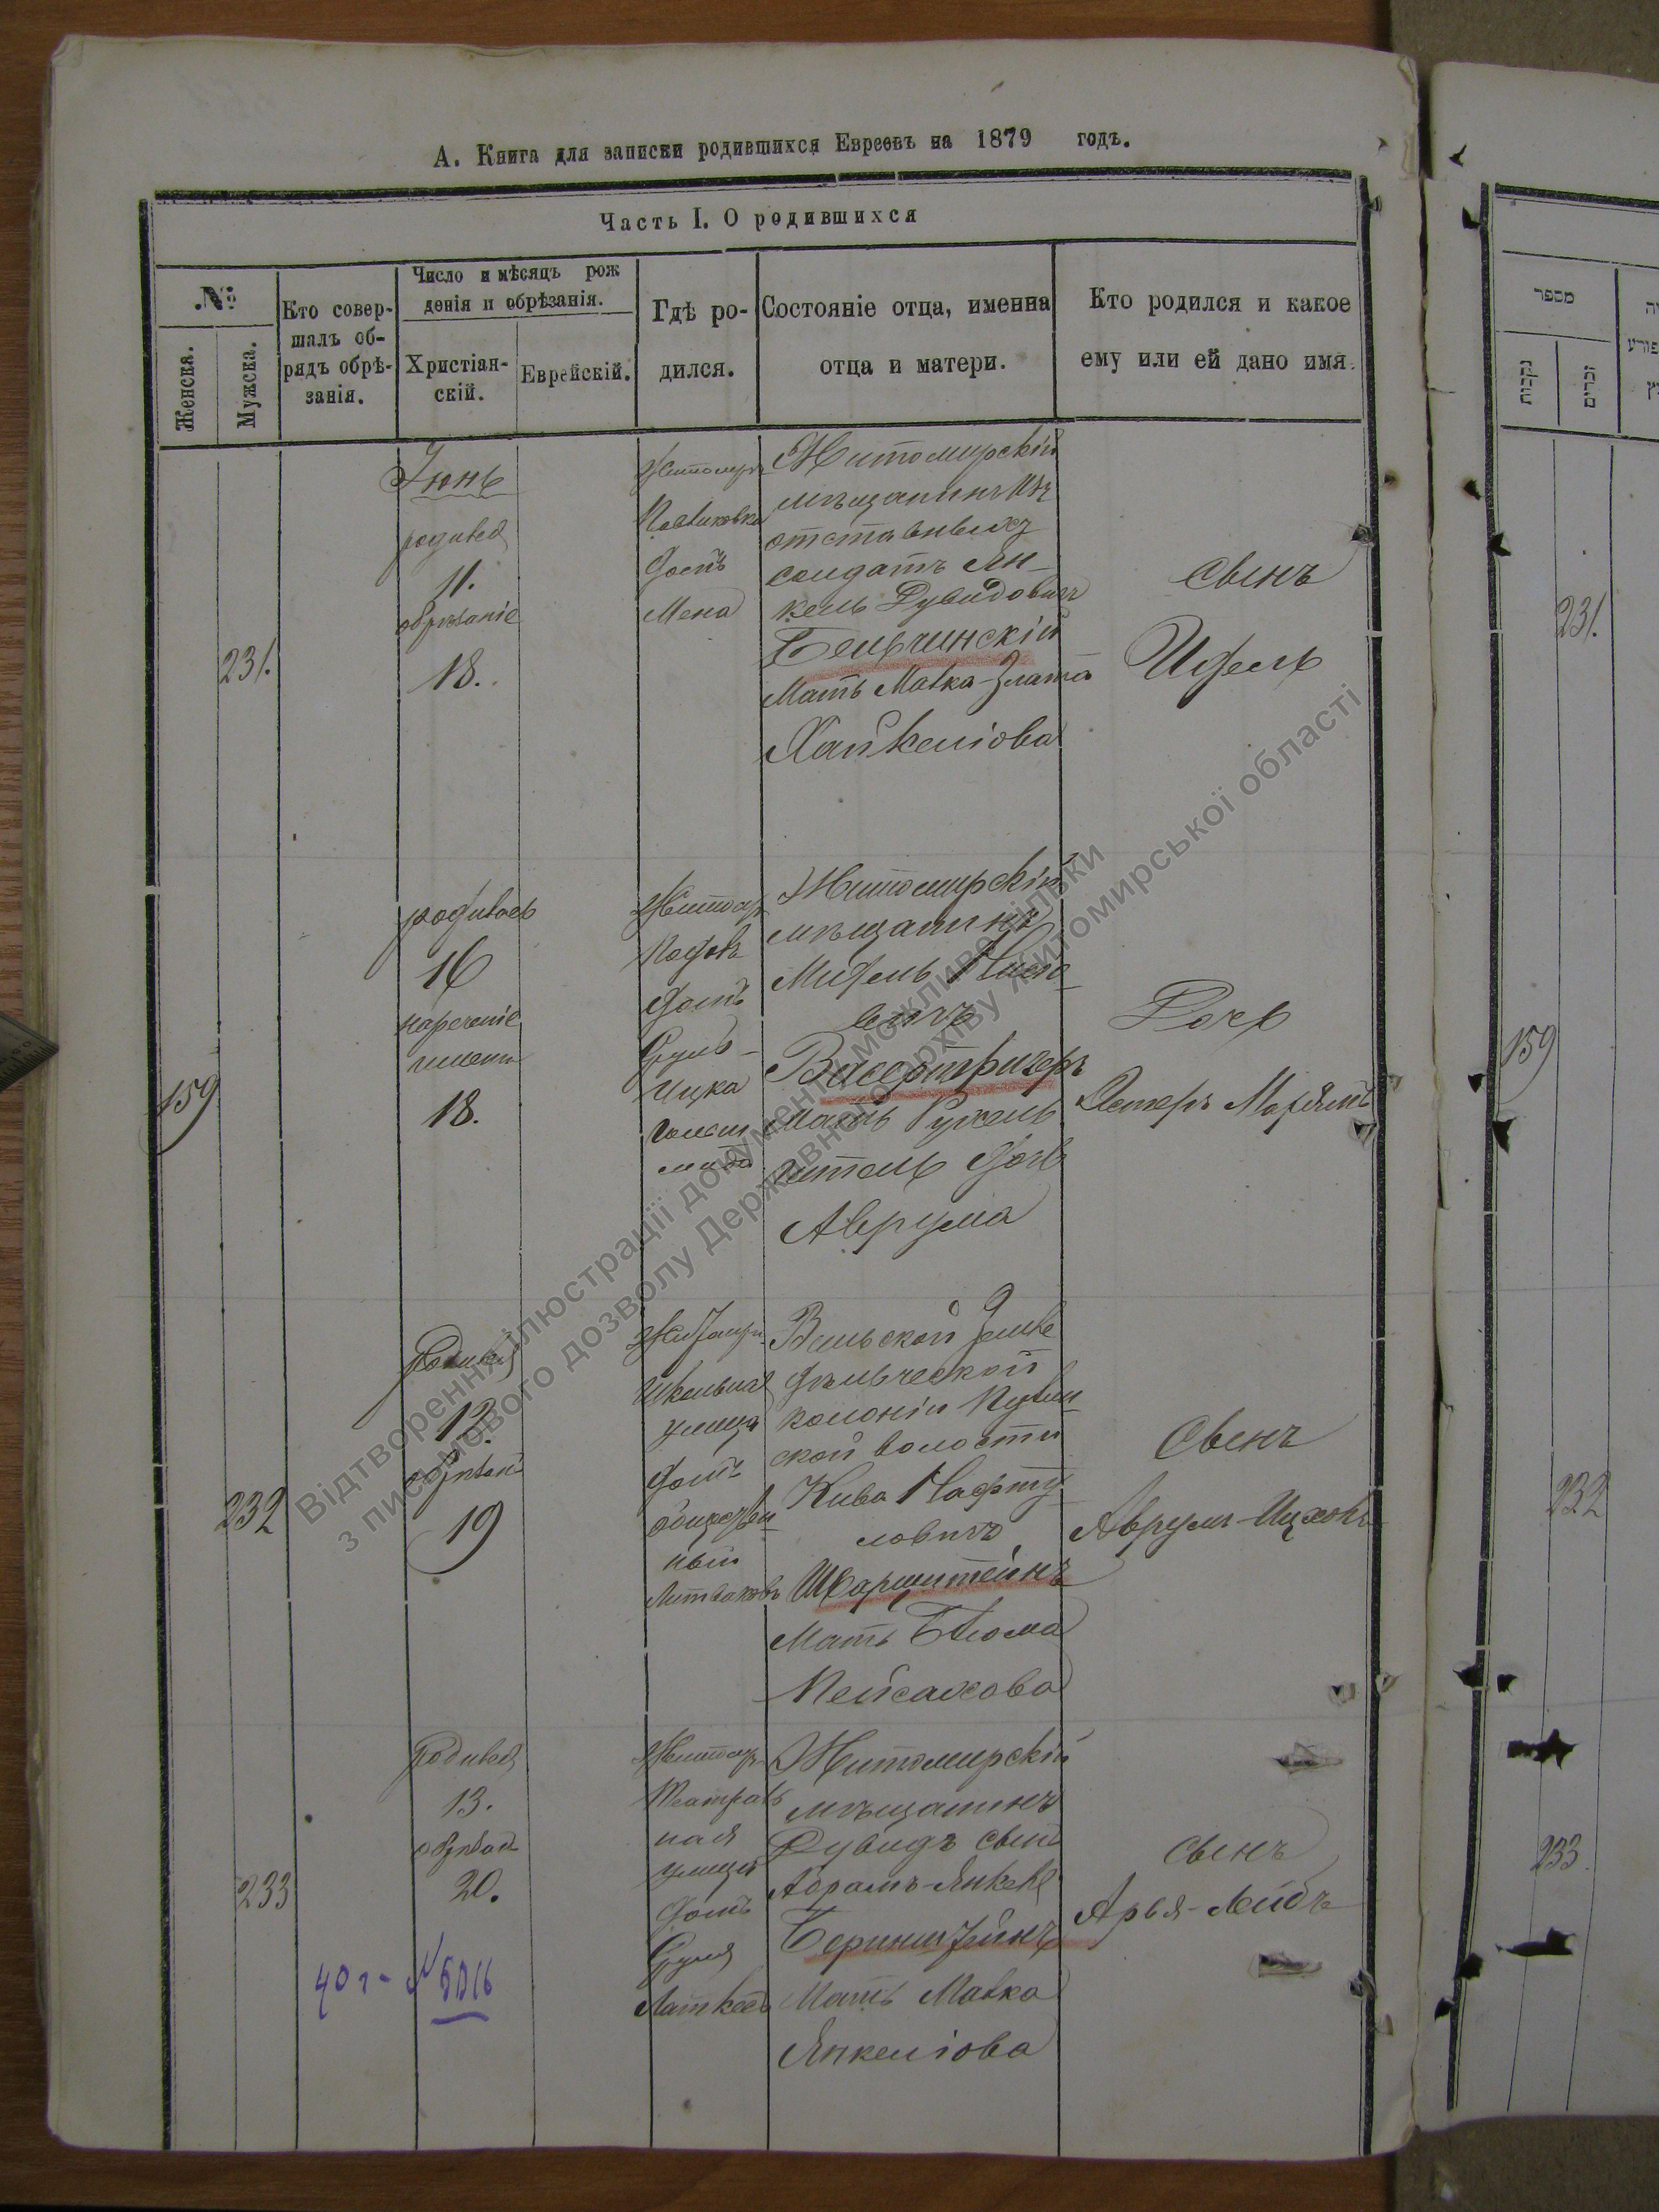 А. Книга для записки родившихся Евреевъ на 1879 годъ.
Часть I. О родившихся
№
Женска.
Мужска.
Кто совер-
шалъ об-
рядъ обрѣ-
занія.
Число и мѣсяцъ рож
денія и обрѣзанія.
Христіан-
скій.
Еврейскій.
Гдѣ ро-
дился.
Состояніе отца, именна
отца и матери.
Кто родился и какое
ему или ей дано имя.
231.
Іюнь
родился
11.
обрѣзаніе
18.
домъ
Житомирскій
мѣщанинъ изъ
отставныхъ
солдатъ Ян-
кель Дувидовичъ
Бельчинскій
Мать Малка-Злата
Хайкеліова
сынъ
Идель
159
родилась
16
нареченіе
имени
18.
домъ
Сруль-
Ицка
Житомирскій
мѣщанинъ
Вассертригеръ
мать Рухель
дочь
Аврума
Дочь
Эстеръ Марьямъ
232
родился
12.
обрѣзан
19
Школьная
улица
домъ
ный
Литваковъ
Вильской Земле
дѣльческой
колоніи Пулин-
ской волости
Кива Нафту
ловичъ
Шварцштейнъ
Мать Блюма
Пейсахова
сынъ
Аврумъ-Ицхокъ
233
родился
13.
20.
Театраль
ная
улица
домъ
Сруля
Житомирскій
мѣщанинъ
Дувидъ сынъ
Абрамъ-Янкель
Беринштейнъ
Мать Малка
Янкеліова
сынъ
Арья-Лейбъ
40 г- №
מספר
נקבות
זכרים
231.
159
232
233
Відтворення ілюстрації документу можливе тільки
з письмового дозволу Державного архіву Житомирської області